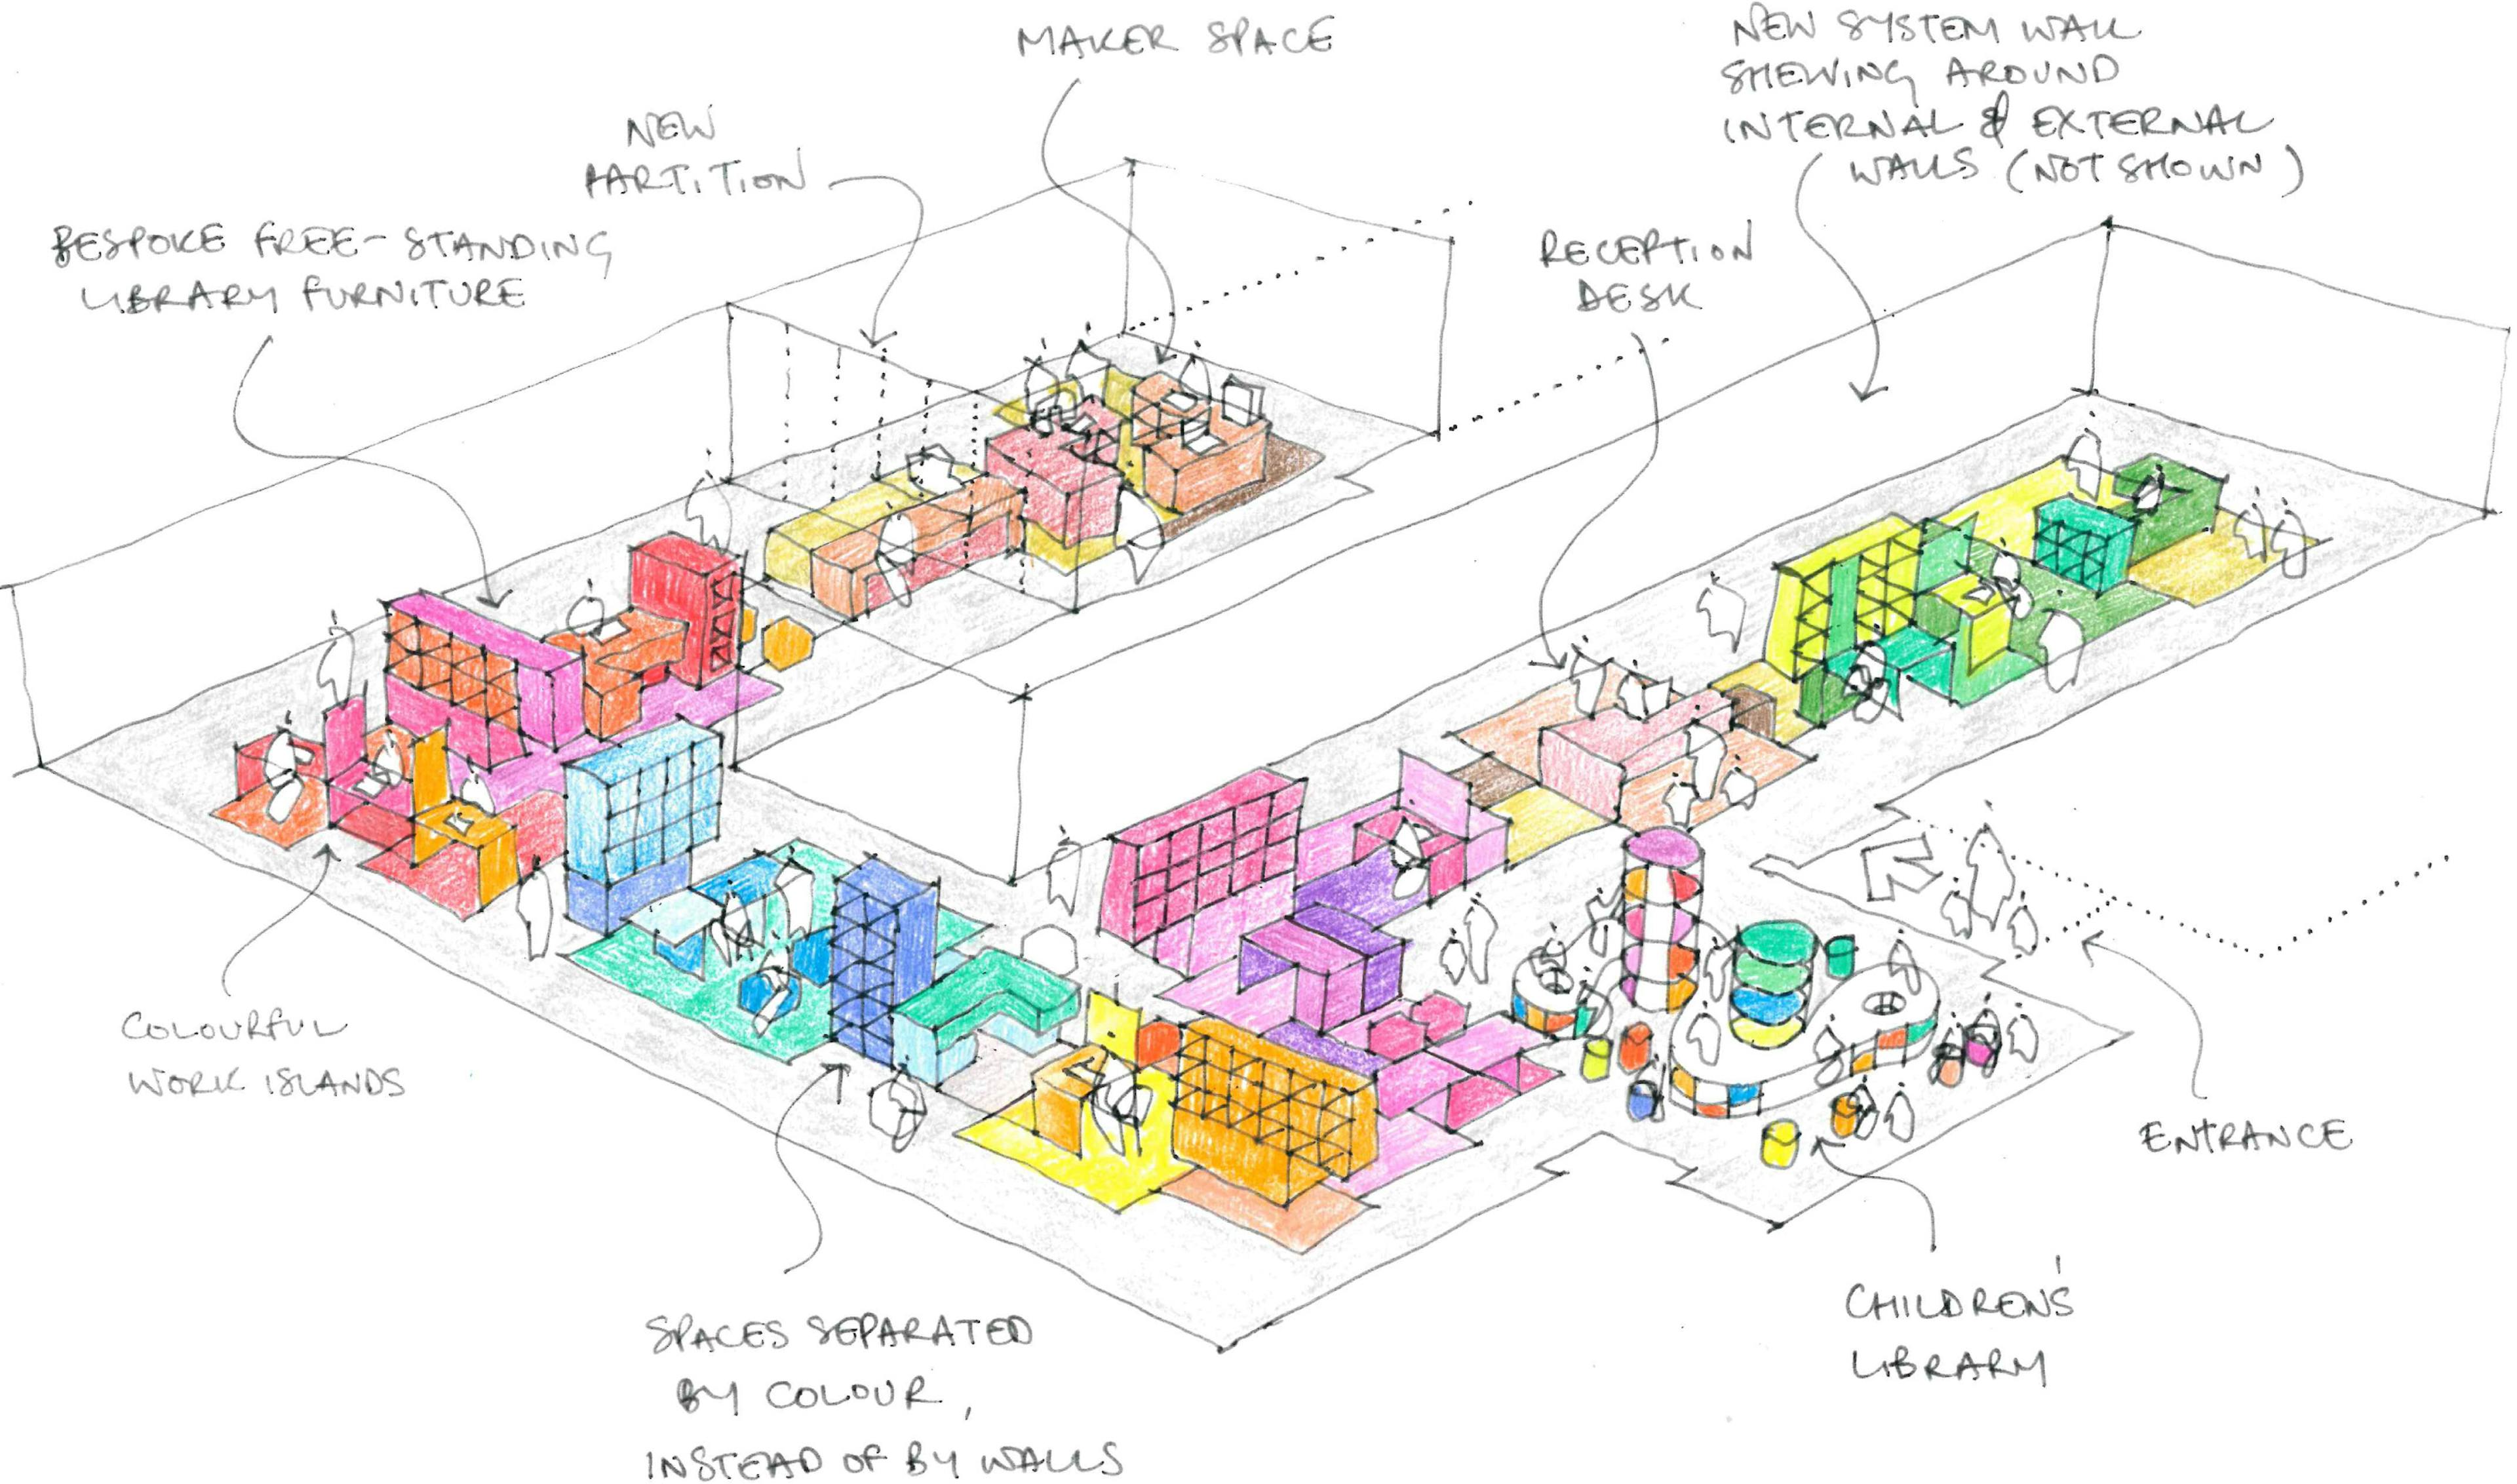 MAKER SPACE
NEW SYSTEM WALL
SHEWING AROUND
INTERNAL & EXTERNAL
WALLS (NOT SHOWN)
NEW
PARTITION
BESPOKE FREE-STANDING
LIBRARY FURNITURE
RECEPTION
DESK
COLOURFUL
WORK ISLANDS
ENTRANCE
SPACES SEPARATED
BY COLOUR,
INSTEAD OF BY WALLS
CHILDREN'S
LIBRARY